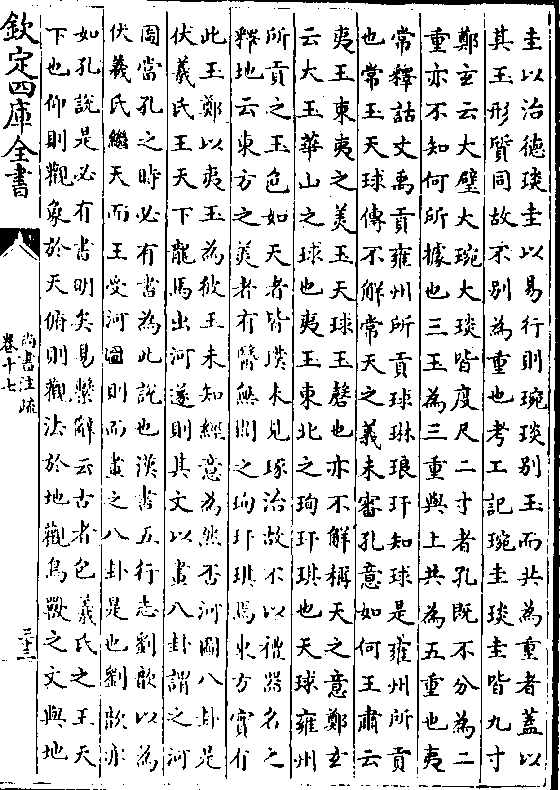 圭以治德琰圭以易行則琬琰别玉而共為重者蓋以
其玉形質同故不别為重也考工記琬圭琰圭皆九寸
鄭𤣥云大璧大琬大琰皆度尺二寸者孔既不分為二
重亦不知何所據也三玉為三重與上共為五重也夷
常釋詁文禹貢雍州所貢球琳琅玕知球是雍州所貢
也常玉天球傳不解常天之義未審孔意如何王肅云
夷玉東夷之美玉天球玉磬也亦不解稱天之意鄭𤣥
云大玉華山之球也夷玉東北之珣玗琪也天球雍州
所貢之玉色如天者皆璞未見琢治故不以禮器名之
釋地云東方之美者有醫無閭之珣玗琪焉東方實有
此玉鄭以夷玉為彼玉未知經意為然否河圖八卦是
伏羲氏王天下龍馬出河遂則其文以畫八卦謂之河
圖當孔之時必有書為此説也漢書五行志劉歆以為
伏羲氏繼天而王受河圖則而畫之八卦是也劉歆亦
如孔説是必有書明矣易繫辭云古者包羲氏之王天
下也仰則觀象於天俯則觀法於地觀鳥獸之文與地
欽定四庫全書
尚書注疏
卷十七
三十二